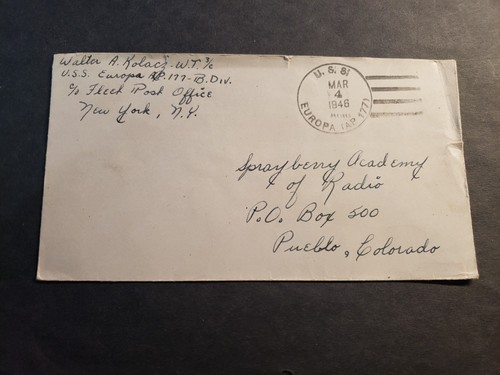 Walter A. Kolacz - W.T. 3/c
U.S.S. Europa AP. 177 - B. Div.
c/o Fleet Post Office
New York, N.Y.
U. S. S.
MAR
4
1946
EUROPA (AP 177)
Sprayberry Academy
of Radio
P.O. Box 500
Pueblo, Colorado